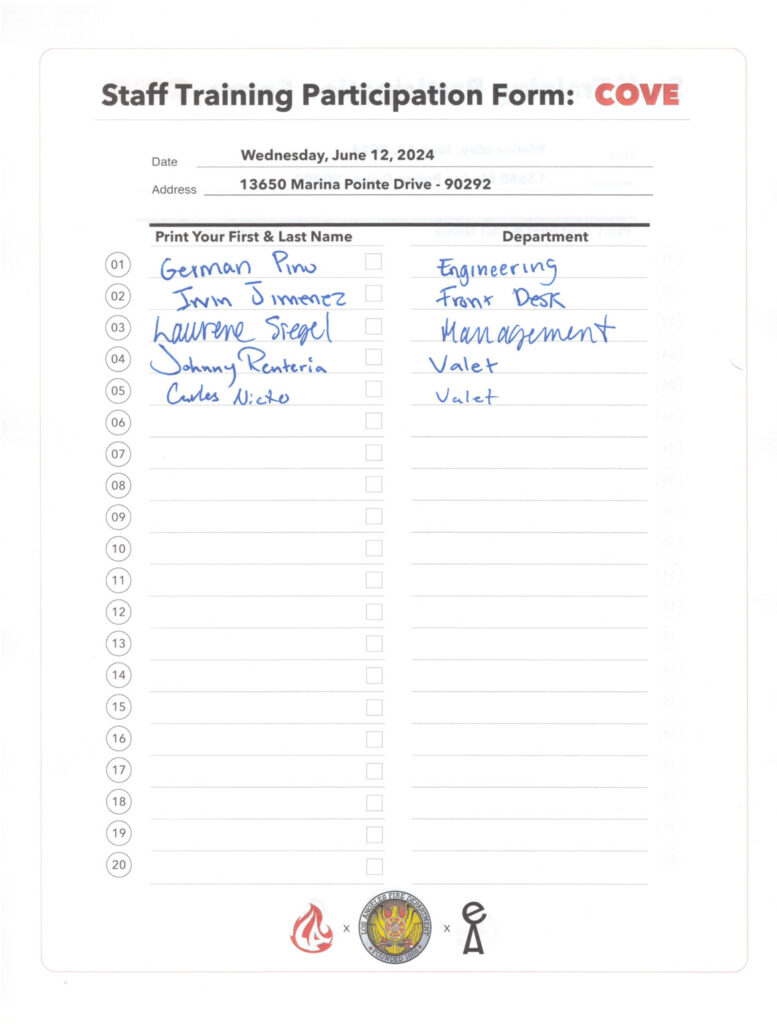 Staff Training Participation Form: COVE
Date Wednesday, June 12, 2024
Address 13650 Marina Pointe Drive - 90292
Print Your First & Last Name Department
01 German Pino Engineering
02 Irvin Jimenez Front Desk
03 Laurene Siegel Management
04 Johnny Renteria Valet
05 Carlos Nieto Valet
06
07
08
09
10
11
12
13
14
15
16
17
18
19
20
x LOS ANGELES FIRE DEPARTMENT FOUNDED 1886 x eA